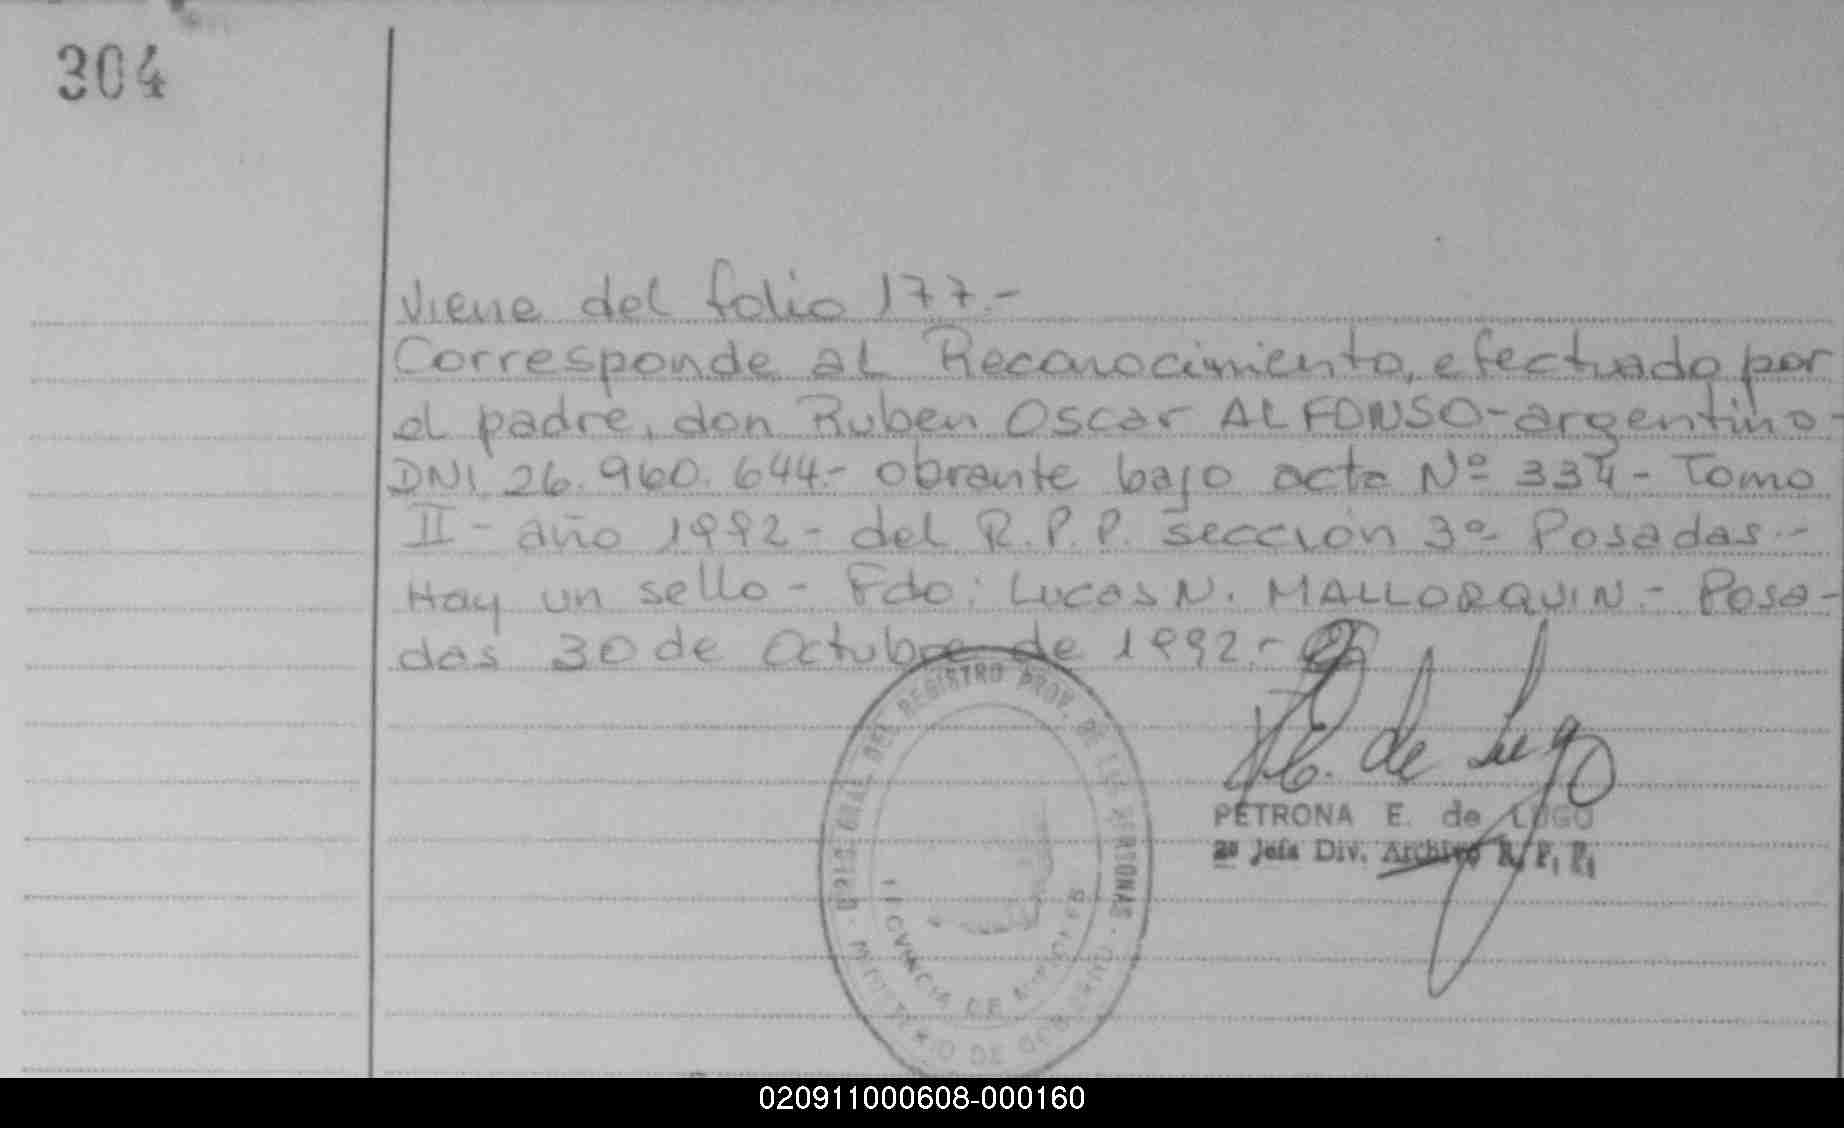 304
Viene del folio 177.-
Corresponde al Reconocimiento, efectuado por
el padre, don Ruben Oscar ALFONSO-argentino-
DNI. 26.960.644.- obrante bajo acta Nº 334- Tomo
II - año 1992 - del R.P.P. sección 3ª Posadas.-
Hay un sello - Fdo: Lucas N. MALLORQUIN.- Posa-
das 30 de Octubre de 1992.-
P.E. de Lugo
PETRONA E. de LUGO
2º Jefe Div. Archivo R. P. P.
GRAL. DEL REGISTRO PROV. DE LAS PERSONAS
MINISTERIO DE GOBIERNO
PROVINCIA DE MISIONES
020911000608-000160